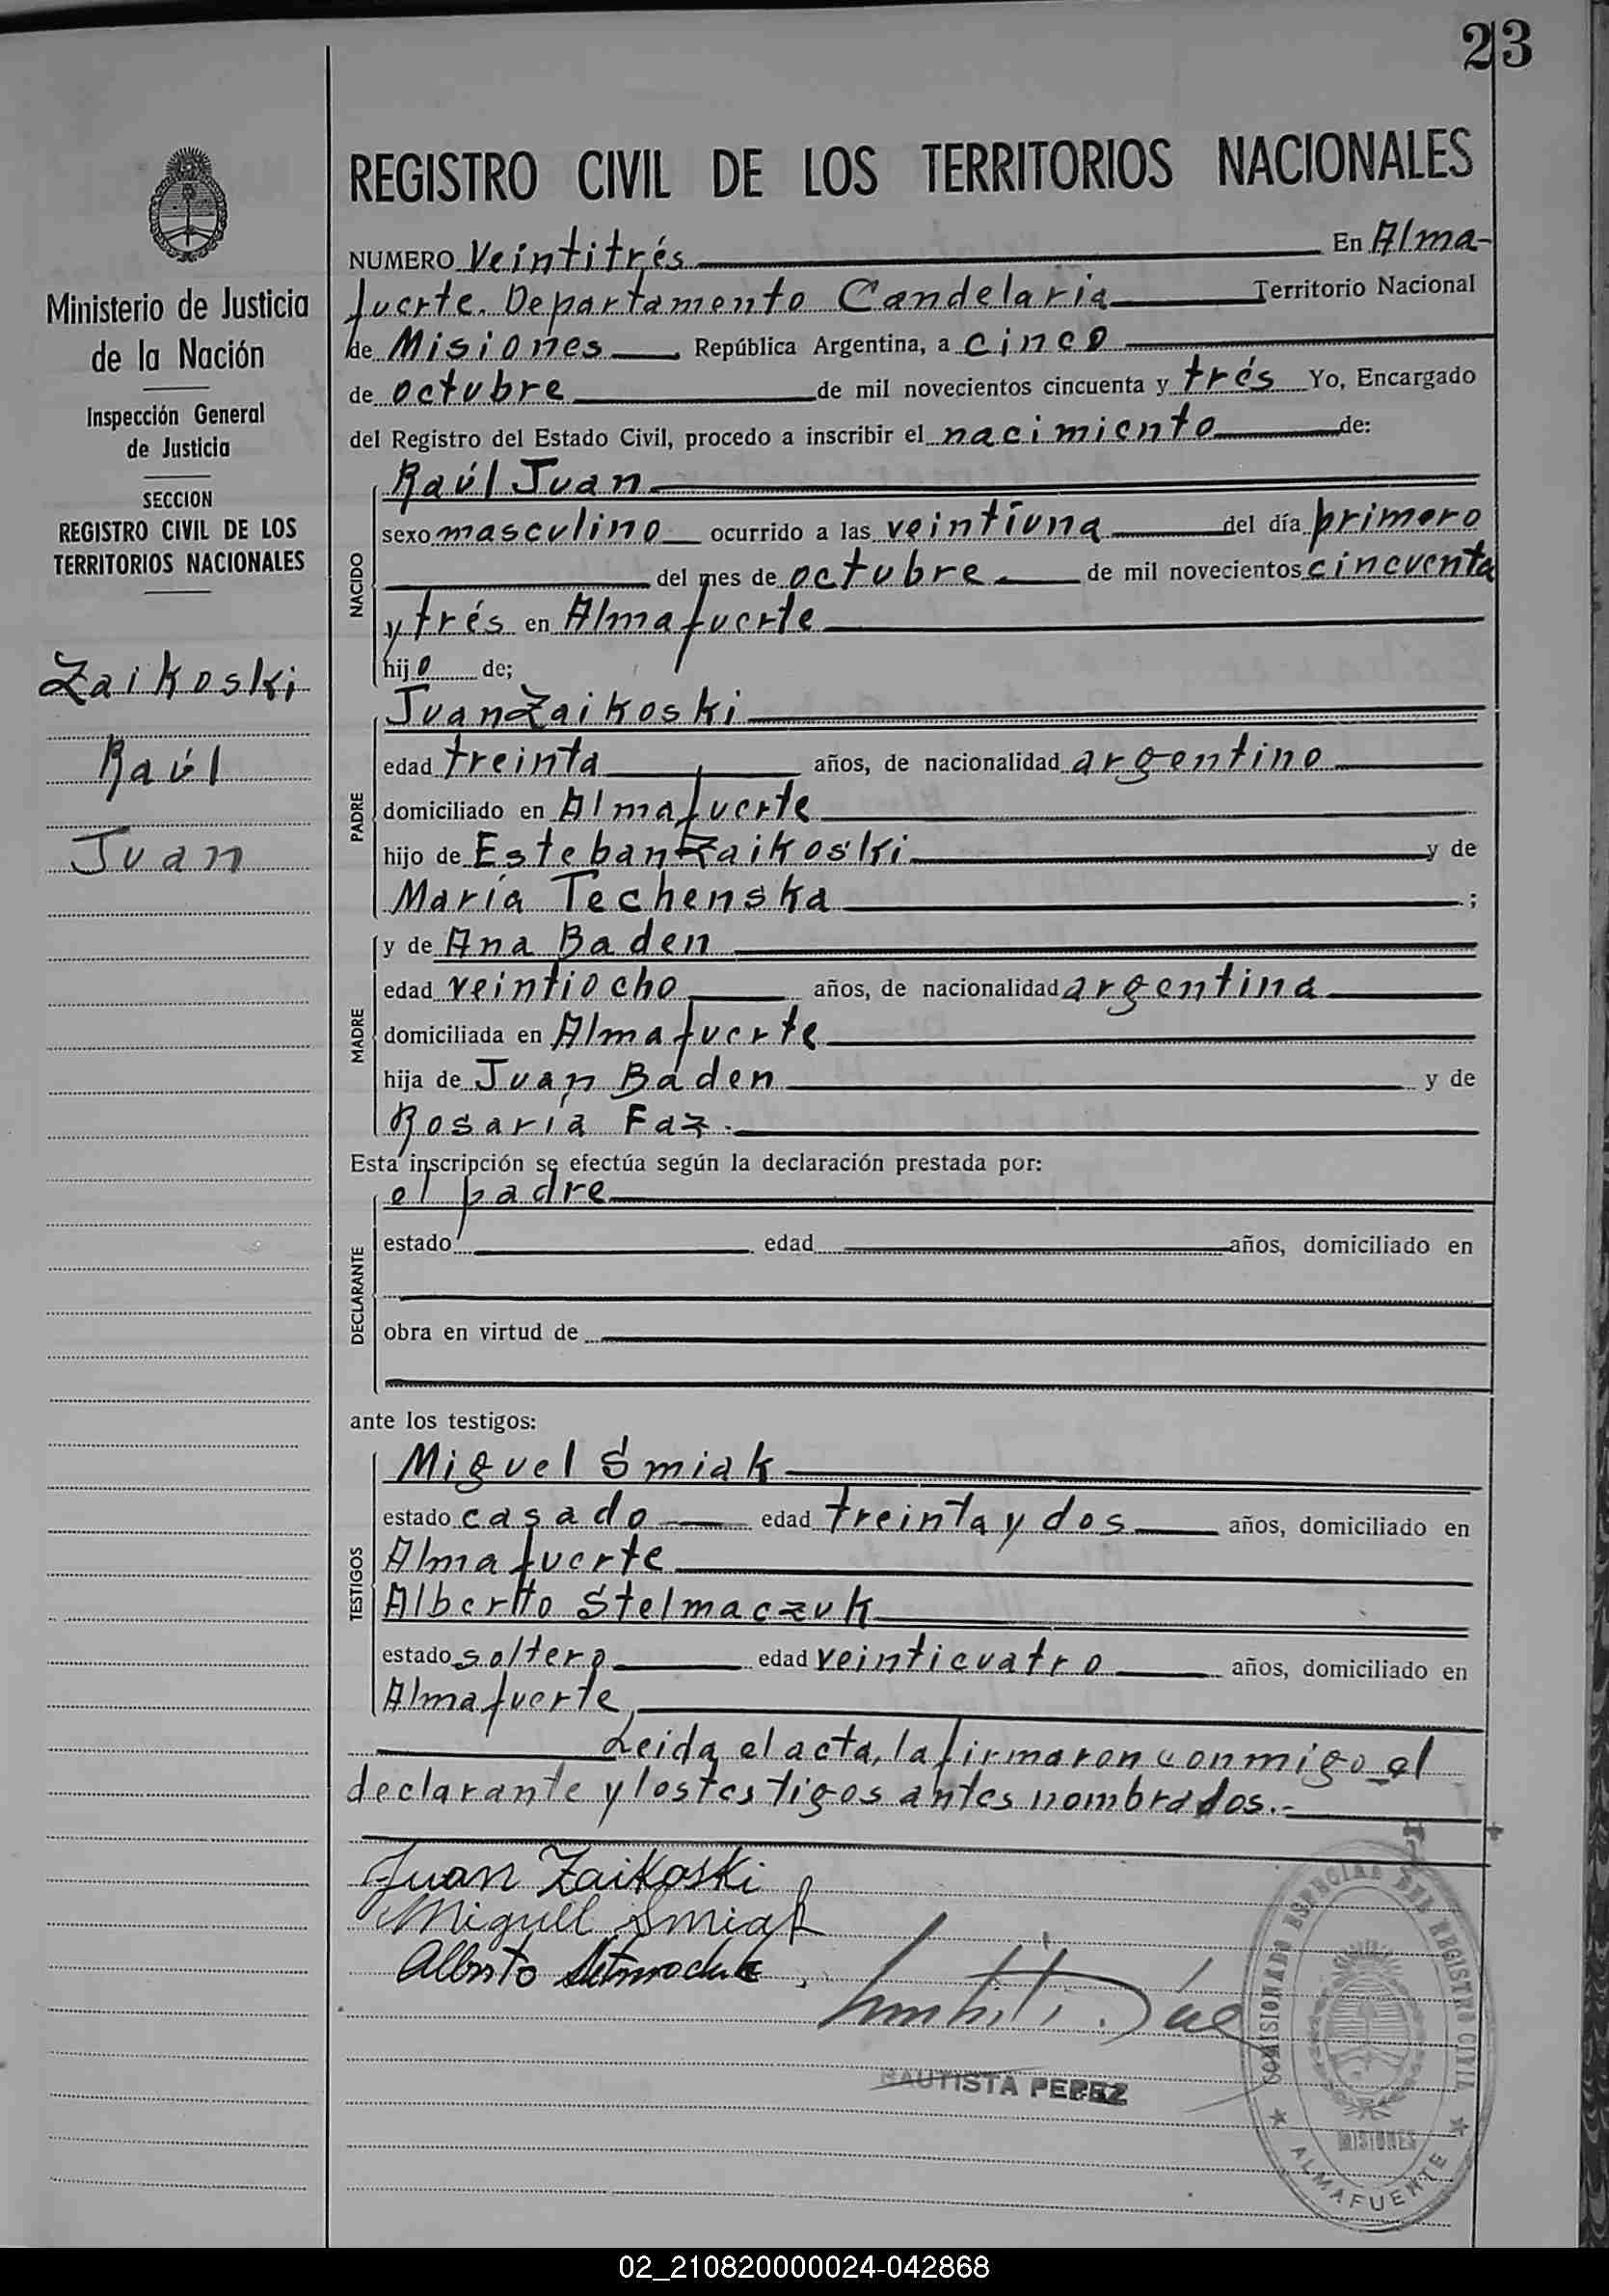 23
Ministerio de Justicia
de la Nación
Inspección General
de Justicia
SECCION
REGISTRO CIVIL DE LOS
TERRITORIOS NACIONALES
Zaikoski
Raúl
Juan
REGISTRO CIVIL DE LOS TERRITORIOS NACIONALES
NUMERO Veintitrés En Alma-
fuerte. Departamento Candelaria Territorio Nacional
de Misiones República Argentina, a cinco
de octubre de mil novecientos cincuenta y trés Yo, Encargado
del Registro del Estado Civil, procedo a inscribir el nacimiento de:
NACIDO
Raúl Juan
sexo masculino ocurrido a las veintiuna del día primero
del mes de octubre de mil novecientos cincuenta
y trés en Almafuerte
hijo de;
PADRE
Juan Zaikoski
edad treinta años, de nacionalidad argentino
domiciliado en Almafuerte
hijo de Esteban Zaikoski y de
María Techenska ;
MADRE
y de Ana Baden
edad veintiocho años, de nacionalidad argentina
domiciliada en Almafuerte
hija de Juan Baden y de
Rosaria Faz.
Esta inscripción se efectúa según la declaración prestada por:
DECLARANTE
el padre
estado edad años, domiciliado en
obra en virtud de
ante los testigos:
TESTIGOS
Miguel Smiak
estado casado edad treinta y dos años, domiciliado en
Almafuerte
Alberto Stelmaczuk
estado soltero edad veinticuatro años, domiciliado en
Almafuerte
Leida el acta, la firmaron conmigo el
declarante y los testigos antes nombrados.-
Juan Zaikoski
Miguel Smiak
Alberto
BAUTISTA PEREZ
COMISIONADO ESPECIAL DEL REGISTRO CIVIL
MISIONES
ALMAFUERTE
02_210820000024-042868